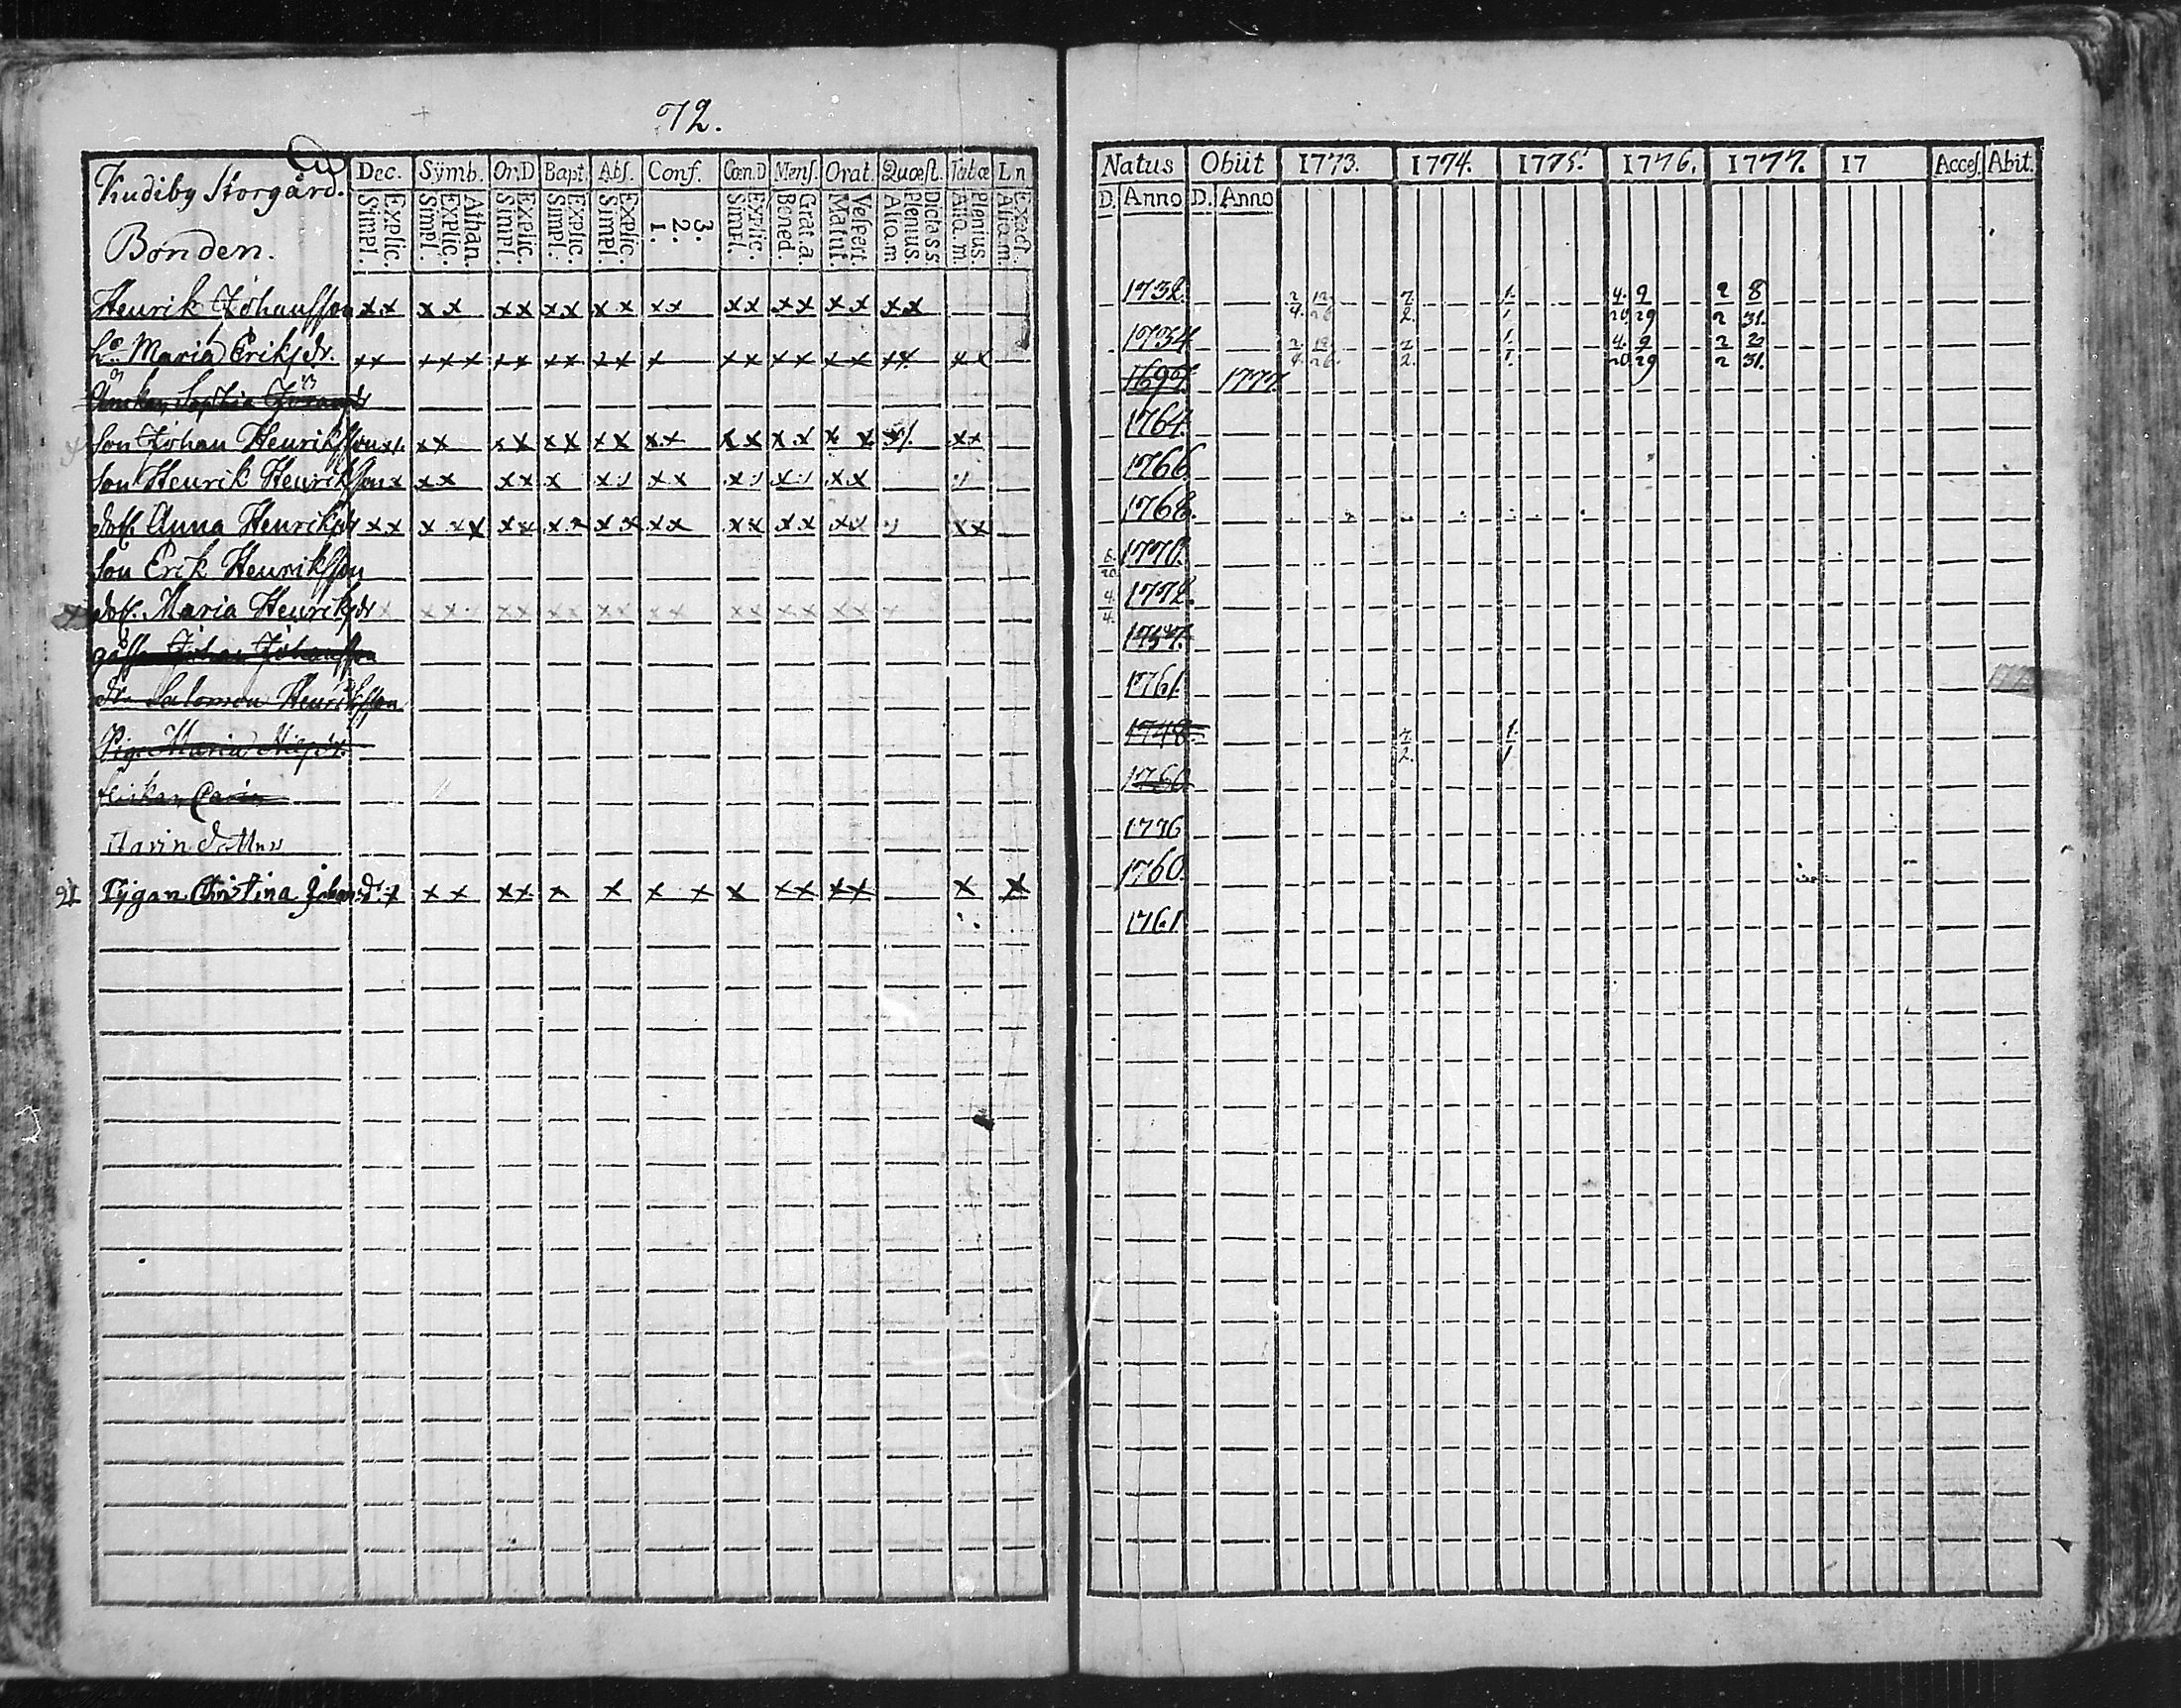 72.
Dec. Sÿmb. Or.D Bapt. Abſ. Conf. Cœn.D Menſ. Orat. Quœſt. Tabœ L.n
Storgård.
Bonden.
Explic. Simpl. Athan. Explic. Simpl. Explic. Simpl. Explic. Simpl. Explic. Simpl. 3. 2. 1. Explic. Simpl. Grat.a. Bened. Veſpert. Matut. Dictaſs. Plenius Aliq.m Plenius. Aliq.m. Exact. Aliq.m.
Henrik Johansson xx xx xx xx xx xx xx xx xx xx
H:o Maria Eriksdr. xx xxx xx xx xx x xx xx xx xx xx
Enkan Sophia
Son Johan Henriksson xx xx xx xx xx xx xx xx xx xx
Son Henrik Henriksson x xx xx x x xx x x xx
dott. Anna Henriksdr xx xxx xx xx xx xx xx xx xx xx
Son Erik Henriksson
dott. Maria Henriksdr x xx xx xx xx xx xx xx xx
gossen Johan Johansson
d:o Salomon Henriksson
Pig. Maria Nilsdr.
flickan Carin
Karin dotter
21 Pigan Christina Johansdr x xx xx x x x x x xx xx x x
Natus Obiit 1773. 1774. 1775. 1776. 1777. 17 Acceſ. Abit.
D. Anno D. Anno
1732. 2 12. 7. 1. 4. 9 2 8
4. 26 2. 1 20. 29 2 31.
1734 2. 12. 7. 1. 4. 9 2 2
4. 26. 2. 1. 20. 29 2 31.
1697. 1777.
1764.
1766.
1768.
8. 20. 1770.
4. 4. 1772.
1757.
1761.
1748. 7. 2. 1. 1
1760
1776
1760.
1761.